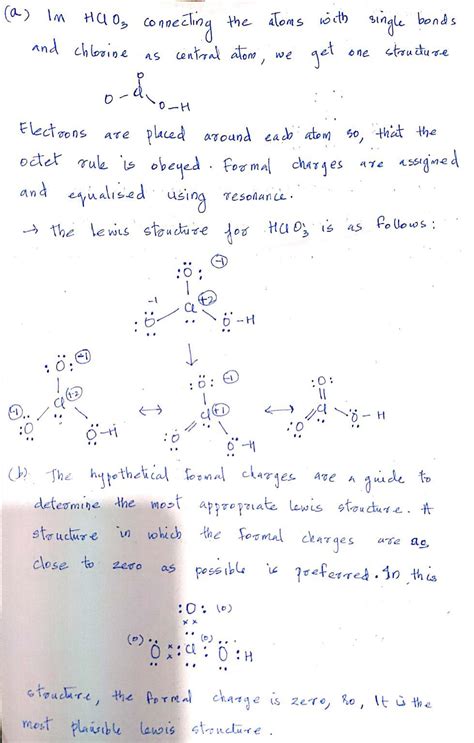 (a) In HClO3 connecting the atoms with single bonds
and chlorine as central atom, we get one structure
O
O - Cl
O-H
Electrons are placed around each atom so, that the
octet rule is obeyed. Formal charges are assigned
and equalised using resonance.
→ the lewis structure for HClO3 is as follows:
:Ö: -1
-1 Cl +2
:Ö Ö-H
↓
:Ö: -1 :Ö: -1 :O:
Cl +2 ↔ Cl +1 ↔ Cl
-1 :Ö Ö-H :O Ö-H :O Ö-H
(b) The hypothetical formal charges are a guide to
determine the most appropriate lewis structure. A
structure in which the formal charges are as
close to zero as possible is preferred. In this
:O: (0)
xx
(0) (0)
O x Cl : O : H
structure, the formal charge is zero, so, It is the
most plausible lewis structure.